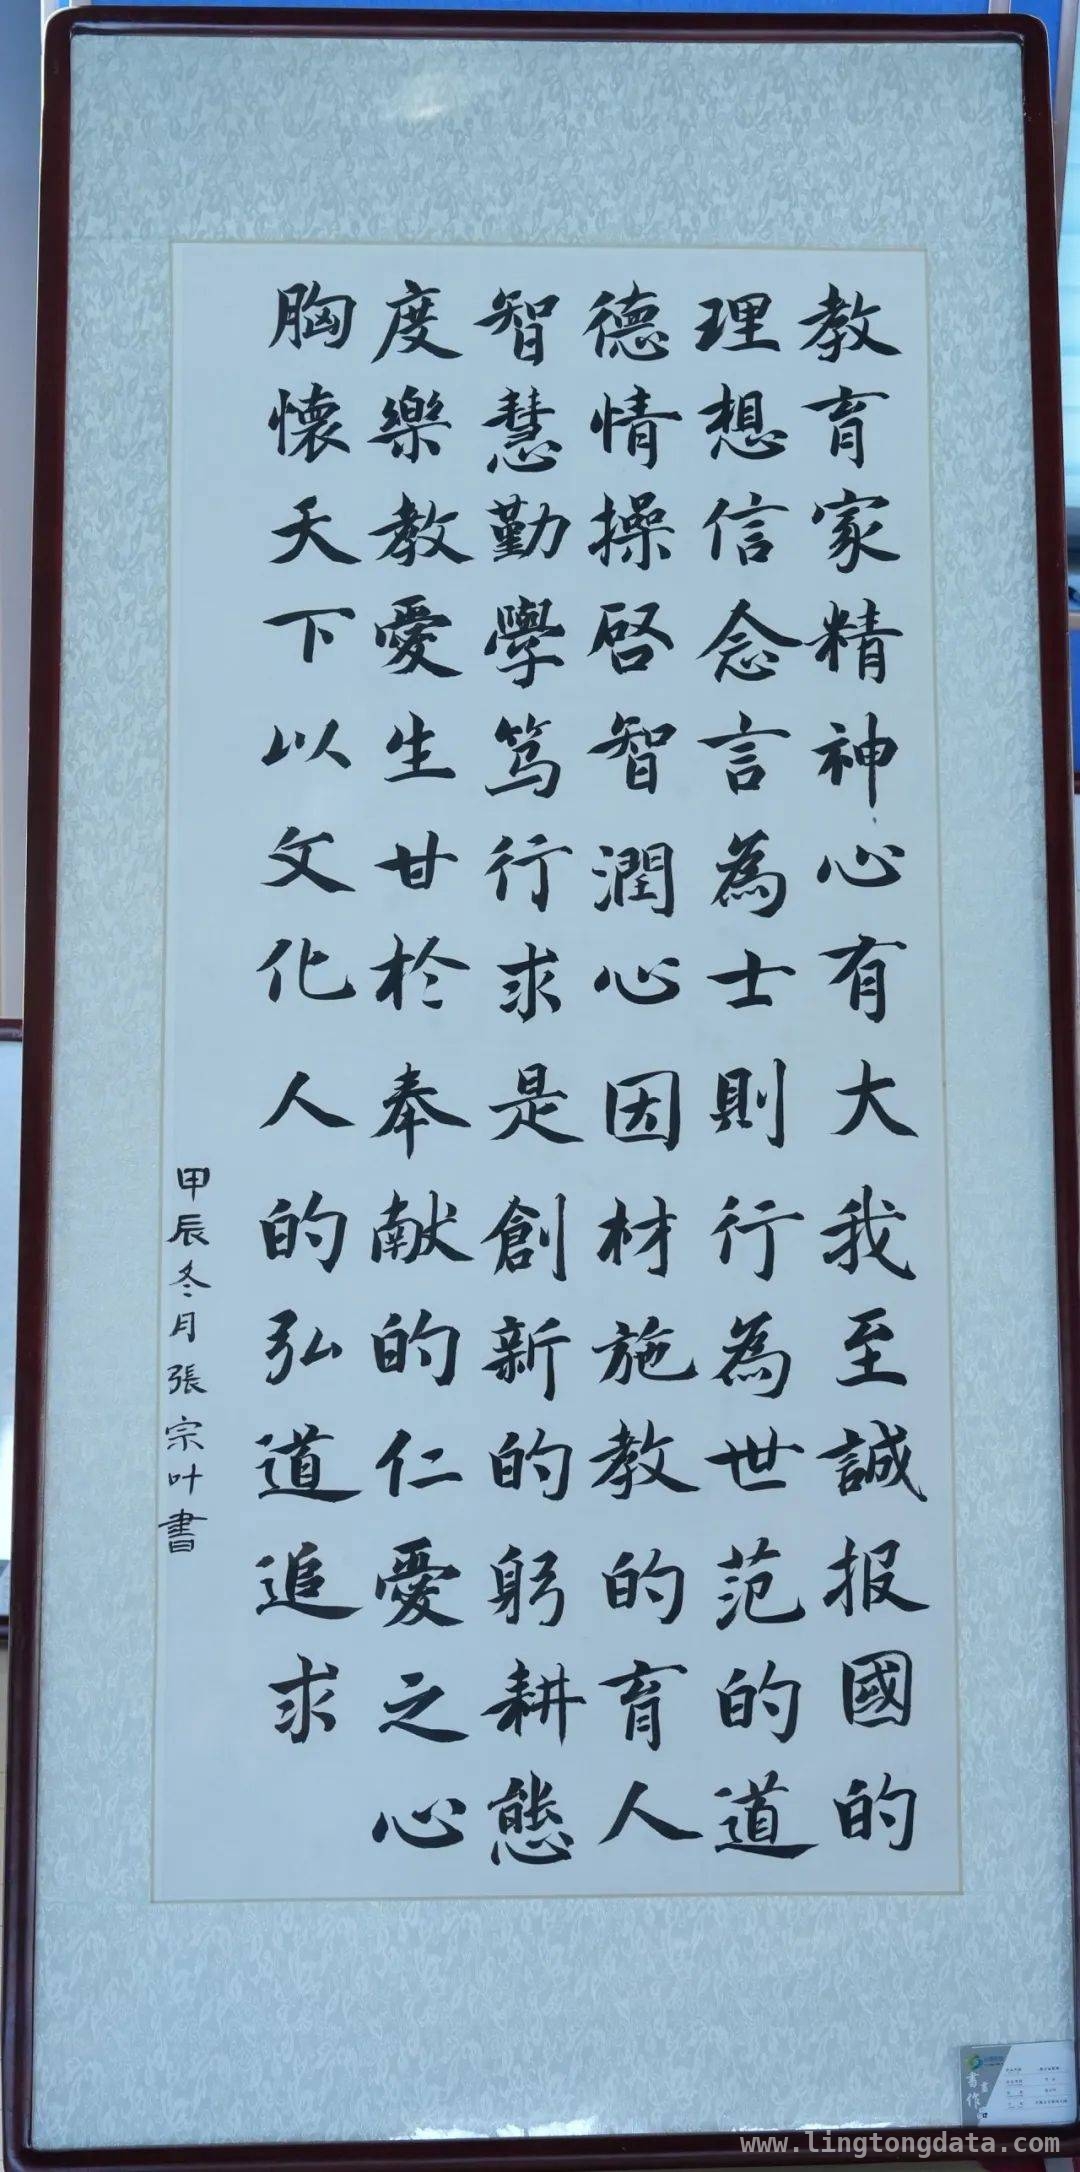 教育家精神心有大我至誠报國的
理想信念言為士則行為世范的道
德情操啓智潤心因材施教的育人
智慧勤學笃行求是創新的躬耕態
度樂教愛生甘於奉献的仁愛之心
胸懷天下以文化人的弘道追求
甲辰冬月張宗叶書
www.lingtongdata.com